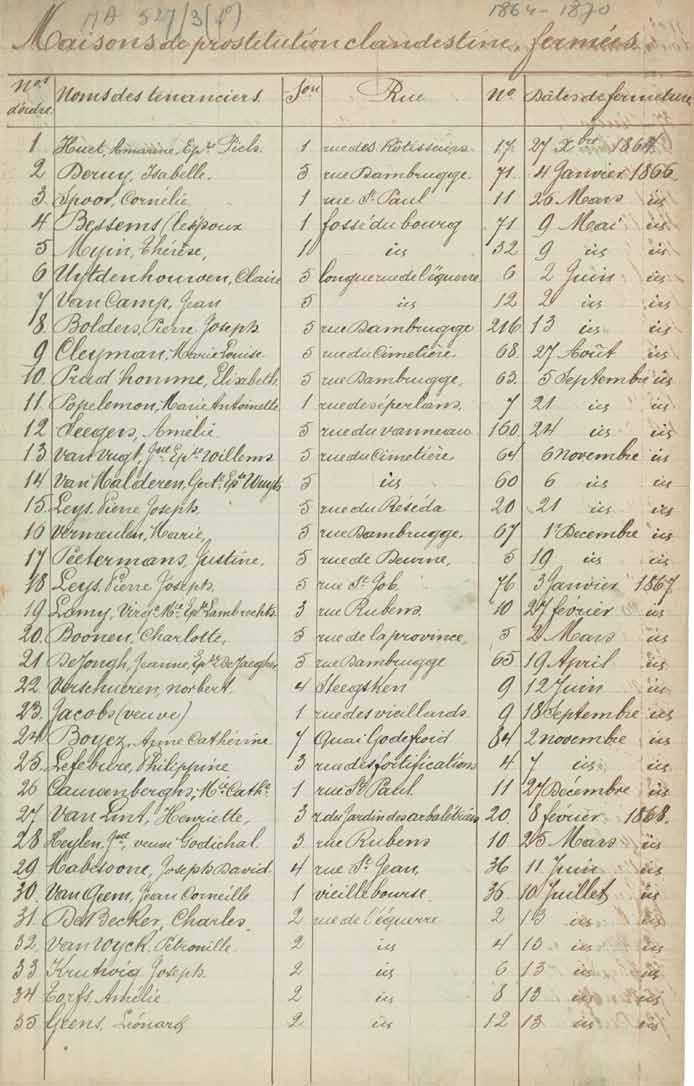 MA 527/3(f) 1864-1870
Maisons de prostitution clandestine, fermées
Nos d'ordre Noms des tenanciers Son Rue No Dates de fermeture
1 Huet, Amarine, Epse Piels 1 rue des Rôtisseurs 17 27 Xbre 1864
2 Deruy, Isabelle 5 rue Dambrugge 71 4 Janvier 1866
3 Spoor, Cornélie 1 rue St Paul 11 26 Mars id
4 Bessems (les époux 1 fossé du bourg 71 9 Mai id
5 Myin, Thérèse, 1 id 32 9 id id
6 Uytdenhouwen, Claire 5 longue rue de l'équerre 6 2 Juin id
7 Van Camp, Jean 5 id 12 2 id id
8 Bolders, Pierre Joseph 5 rue Dambrugge 216 13 id id
9 Cleyman, Marie Louise 5 rue du Cimetière 68 27 Août id
10 Prud'homme, Elisabeth 5 rue Dambrugge, 63 5 Septembre id
11 Popelemon, Marie Antoinette 1 rue des éperlans, 7 21 id id
12 Seegers, Amélie 5 rue du vanneau 160 24 id id
13 Van Vugt, Epse Willems 5 rue du Cimetière 64 6 novembre id
14 Van Malderen, Gert. Epse Wuyts 5 id 60 6 id id
15 Leys, Pierre Joseph 5 rue du Réséda 20 21 id id
16 Vermeulen, Marie 5 rue Dambrugge, 67 1r Décembre id
17 Peetermans, Justine, 5 rue de Deurne, 5 19 id id
18 Leys, Pierre Joseph, 5 rue St Job 76 3 Janvier 1867
19 Lamy, Virge Mie Epse Lambrechts 3 rue Rubens 10 27 février id
20 Boonen, Charlotte, 5 rue de la province, 5 2 Mars id
21 De Jongh, Jeanne, Epse De Jaegher 5 rue Dambrugge 65 19 April id
22 Verschueren, norbert 4 Steegsken 9 12 Juin id
23 Jacobs (veuve) 1 rue des vieillards 9 18 Septembre id
24 Boyez, Anne Cathérine 7 Quai Godefroid 84 2 novembre id
25 Lefebvre, Philippine 3 rue des fortifications 4 7 id id
26 Cauwenberghs, Mie Cathe 1 rue St Paul 11 27 Décembre id
27 Van Lint, Henriette, 3 r. du Jardin des arbalétriers 20 8 février 1868
28 Heylen, Jne, veuve Godichal 3 rue Rubens 10 25 Mars id
29 Habesoone, Joseph David 4 rue St Jean, 36 11 Juin id
30 Van Geem, Jean Corneille 1 vieille bourse 35 10 Juillet id
31 De Becker, Charles 2 rue de l'équerre 2 13 id id
32 Van Wyck, Pétronille 2 id 4 13 id id
33 Krutwig Joseph 2 id 6 13 id id
34 Torfs, Amélie 2 id 8 13 id id
35 Geens, Léonard 2 id 12 13 id id